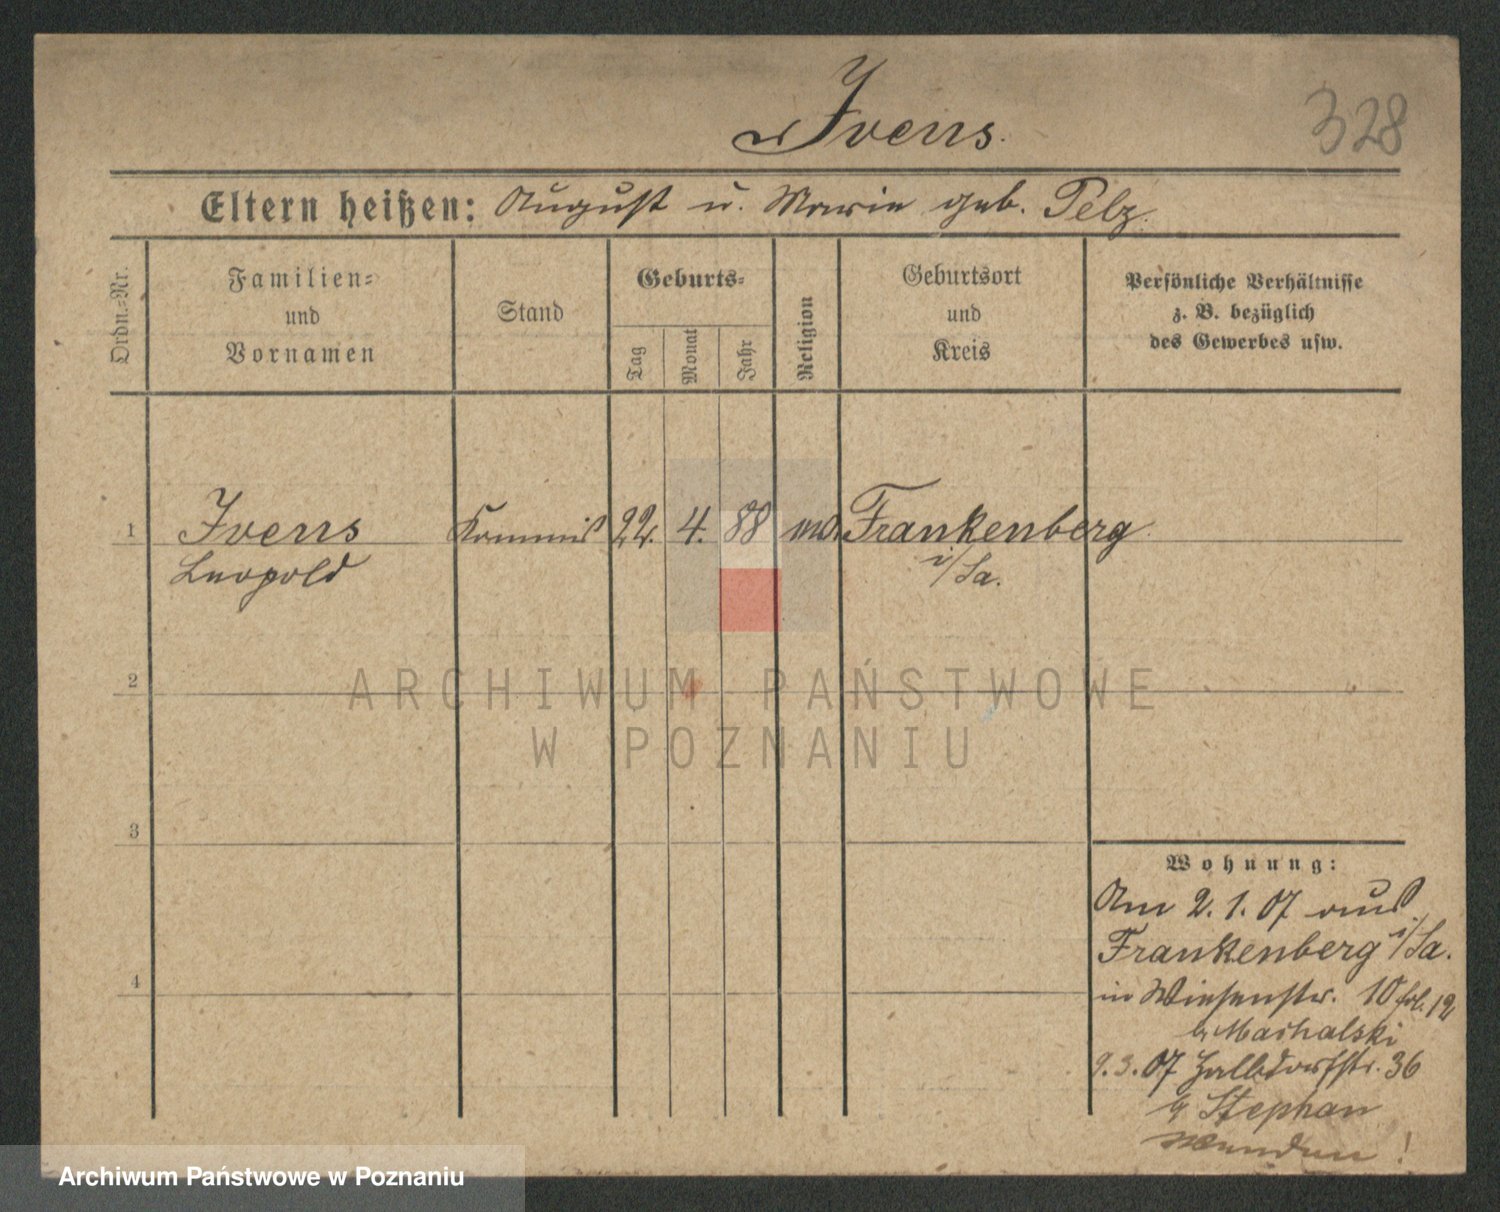 Ivens.
328
Eltern heißen: August u. Marie geb. Pelz.
Ordn.-Nr.
Familien-
und
Vornamen
Stand
Geburts-
Tag
Monat
Jahr
Religion
Geburtsort
und
Kreis
Persönliche Verhältnisse
z. B. bezüglich
des Gewerbes usw.
1 Ivens Kommis 22. 4. 88 Frankenberg
Leopold i/Sa.
2
3
4
Wohnung:
Am 2. 1. 07 aus
Frankenberg i/Sa.
in Wiesenstr. 10 fol. 12
b/ Machalski
9. 3. 07 Halbdorfstr. 36
b/ Stephan
Wenden!
ARCHIWUM PAŃSTWOWE
W POZNANIU
Archiwum Państwowe w Poznaniu